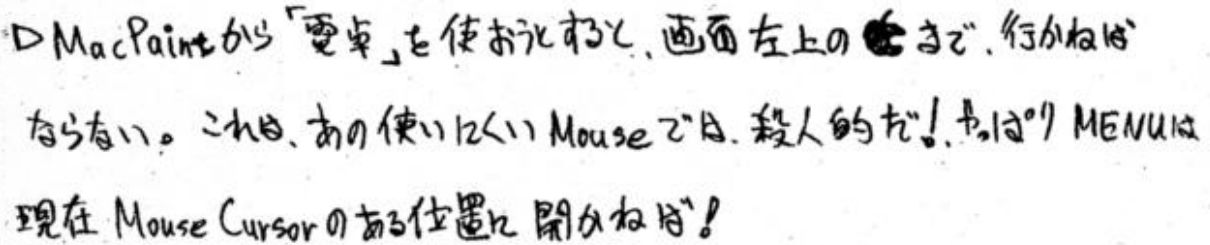 ▷MacPaintから「電卓」を使おうとすると、画面左上の🍎まで、行かねば
ならない。これは、あの使いにくいMouseでは、殺人的だ！、やっぱりMENUは
現在Mouse Cursorのある位置に開かねば！